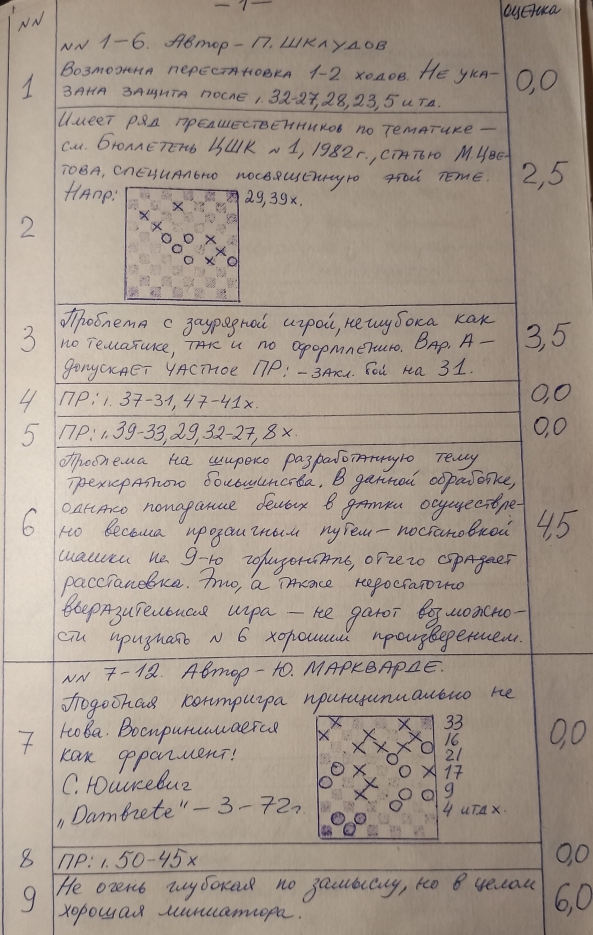 — 1 —
NN
оценка
NN 1–6. Автор – П. Шклудов
1
Возможна перестановка 1-2 ходов. Не ука-
зана защита после 1. 32-27, 28, 23, 5 и т.д.
0,0
Имеет ряд предшественников по тематике –
см. Бюллетень ЦШК N 1, 1982 г., статью М. Цве-
това, специально посвященную этой теме.
Напр:
29, 39х.
2
2,5
3
Проблема с заурядной игрой, неглубока как
по тематике, так и по оформлению. Вар. А –
допускает частное ПР: – закл. бой на 31.
3,5
4
ПР: 1. 37-31, 47-41х.
0,0
5
ПР: 1. 39-33, 29, 32-27, 8х.
0,0
Проблема на широко разработанную тему
трехкратного большинства. В данной обработке,
однако попадание белых в дамки осуществле-
но весьма прозаичным путем – постановкой
шашки на 9-ю горизонталь, отчего страдает
расстановка. Это, а также недостаточно
выразительная игра – не дают возможно-
сти признать N 6 хорошим произведением.
6
4,5
NN 7-12. Автор – Ю. Маркварде.
Подобная контригра принципиально не
нова. Воспринимается
как фрагмент!
С. Юшкевич
„Dambrete" – 3 – 72 г.
33
16
21
17
9
4 и т.д х.
7
0,0
8
ПР: 1. 50-45х
0,0
9
Не очень глубокая по замыслу, но в целом
хорошая миниатюра.
6,0